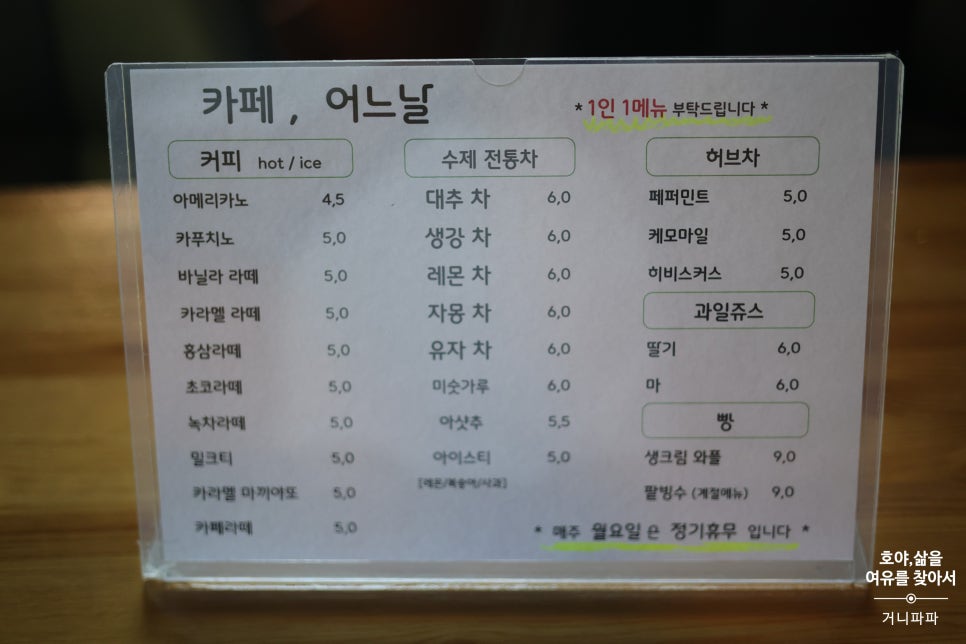 카페, 어느날
* 1인 1메뉴 부탁드립니다 *
커피 hot / ice
아메리카노 4,5
카푸치노 5,0
바닐라 라떼 5,0
카라멜 라떼 5,0
홍삼라떼 5,0
초코라떼 5,0
녹차라떼 5,0
밀크티 5,0
카라멜 마끼아또 5,0
카페라떼 5,0
수제 전통차
대추 차 6,0
생강 차 6,0
레몬 차 6,0
자몽 차 6,0
유자 차 6,0
미숫가루 6,0
아샷추 5,5
아이스티 5,0
[레몬/복숭아/사과]
허브차
페퍼민트 5,0
케모마일 5,0
히비스커스 5,0
과일쥬스
딸기 6,0
마 6,0
빵
생크림 와플 9,0
팥빙수 (계절메뉴) 9,0
* 매주 월요일은 정기휴무 입니다 *
호야,삶을
여유를 찾아서
거니파파